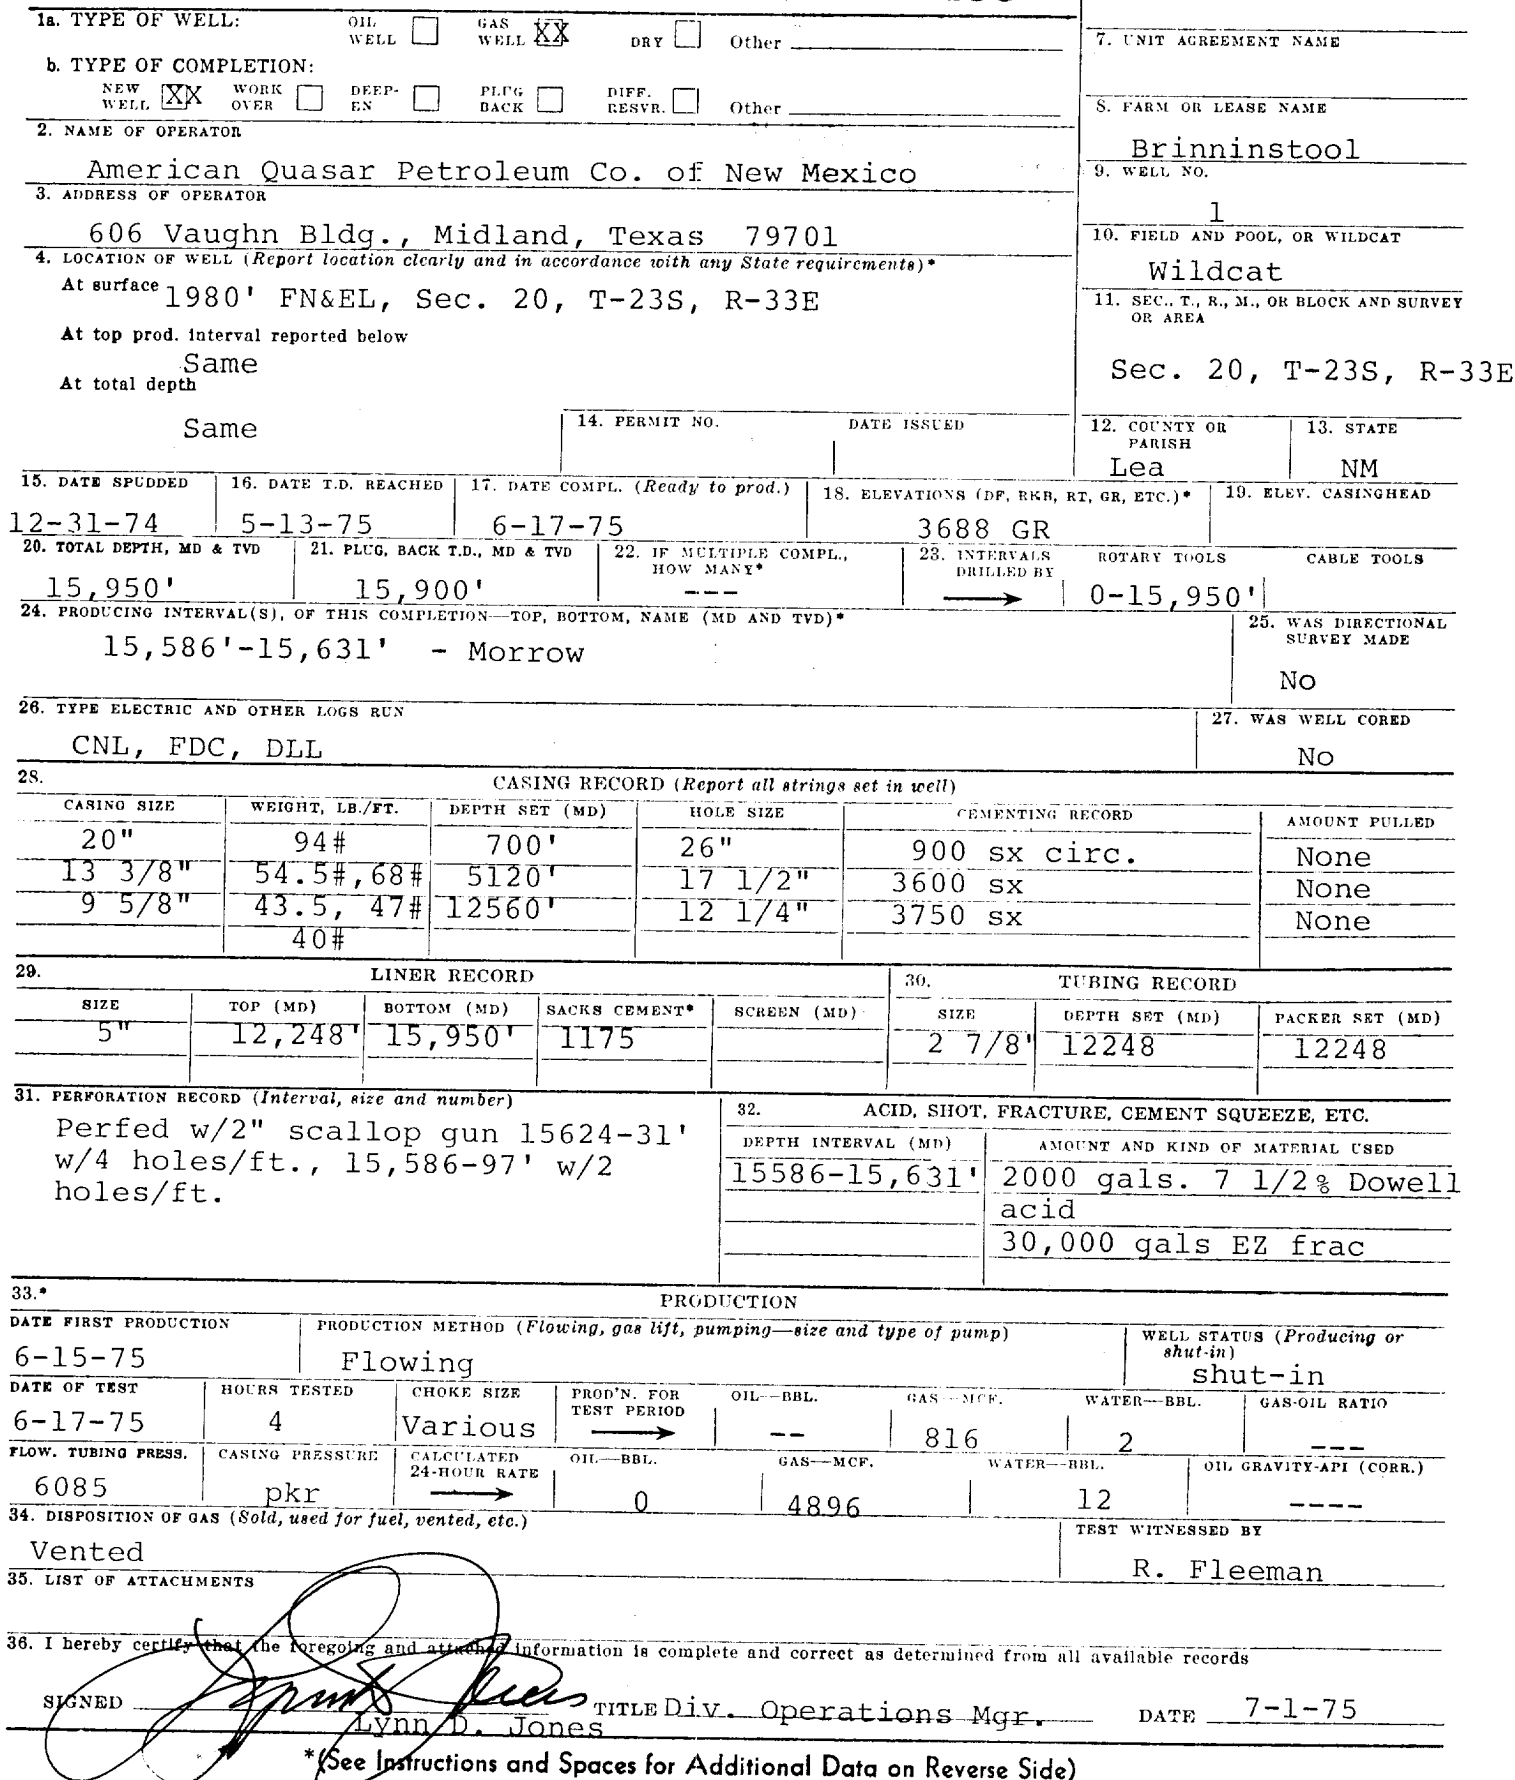 1a. TYPE OF WELL: OIL WELL GAS WELL XX DRY Other
b. TYPE OF COMPLETION:
NEW WELL XX WORK OVER DEEP-EN PLUG BACK DIFF. RESVR. Other
7. UNIT AGREEMENT NAME
S. FARM OR LEASE NAME
Brinninstool
2. NAME OF OPERATOR
American Quasar Petroleum Co. of New Mexico
9. WELL NO.
1
3. ADDRESS OF OPERATOR
606 Vaughn Bldg., Midland, Texas 79701
10. FIELD AND POOL, OR WILDCAT
Wildcat
4. LOCATION OF WELL (Report location clearly and in accordance with any State requirements)*
At surface 1980' FN&EL, Sec. 20, T-23S, R-33E
At top prod. interval reported below
Same
At total depth
Same
11. SEC., T., R., M., OR BLOCK AND SURVEY
OR AREA
Sec. 20, T-23S, R-33E
14. PERMIT NO. DATE ISSUED
12. COUNTY OR PARISH
Lea
13. STATE
NM
15. DATE SPUDDED 16. DATE T.D. REACHED 17. DATE COMPL. (Ready to prod.) 18. ELEVATIONS (DF, RKB, RT, GR, ETC.)* 19. ELEV. CASINGHEAD
12-31-74 5-13-75 6-17-75 3688 GR
20. TOTAL DEPTH, MD & TVD 21. PLUG, BACK T.D., MD & TVD 22. IF MULTIPLE COMPL., HOW MANY* 23. INTERVALS DRILLED BY ROTARY TOOLS CABLE TOOLS
15,950' 15,900' --- 0-15,950'
24. PRODUCING INTERVAL(S), OF THIS COMPLETION—TOP, BOTTOM, NAME (MD AND TVD)*
15,586'-15,631' - Morrow
25. WAS DIRECTIONAL SURVEY MADE
No
26. TYPE ELECTRIC AND OTHER LOGS RUN
CNL, FDC, DLL
27. WAS WELL CORED
No
28. CASING RECORD (Report all strings set in well)
CASING SIZE WEIGHT, LB./FT. DEPTH SET (MD) HOLE SIZE CEMENTING RECORD AMOUNT PULLED
20" 94# 700' 26" 900 sx circ. None
13 3/8" 54.5#,68# 5120' 17 1/2" 3600 sx None
9 5/8" 43.5, 47# 12560' 12 1/4" 3750 sx None
40#
29. LINER RECORD
SIZE TOP (MD) BOTTOM (MD) SACKS CEMENT* SCREEN (MD)
5" 12,248' 15,950' 1175
30. TUBING RECORD
SIZE DEPTH SET (MD) PACKER SET (MD)
2 7/8' 12248 12248
31. PERFORATION RECORD (Interval, size and number)
Perfed w/2" scallop gun 15624-31'
w/4 holes/ft., 15,586-97' w/2
holes/ft.
32. ACID, SHOT, FRACTURE, CEMENT SQUEEZE, ETC.
DEPTH INTERVAL (MD) AMOUNT AND KIND OF MATERIAL USED
15586-15,631' 2000 gals. 7 1/2% Dowell
acid
30,000 gals EZ frac
33.* PRODUCTION
DATE FIRST PRODUCTION PRODUCTION METHOD (Flowing, gas lift, pumping—size and type of pump) WELL STATUS (Producing or shut-in)
6-15-75 Flowing shut-in
DATE OF TEST HOURS TESTED CHOKE SIZE PROD'N. FOR TEST PERIOD OIL—BBL. GAS—MCF. WATER—BBL. GAS-OIL RATIO
6-17-75 4 Various -- 816 2 ---
FLOW. TUBING PRESS. CASING PRESSURE CALCULATED 24-HOUR RATE OIL—BBL. GAS—MCF. WATER—BBL. OIL GRAVITY-API (CORR.)
6085 pkr 0 4896 12 ----
34. DISPOSITION OF GAS (Sold, used for fuel, vented, etc.)
Vented
TEST WITNESSED BY
R. Fleeman
35. LIST OF ATTACHMENTS
36. I hereby certify that the foregoing and attached information is complete and correct as determined from all available records
SIGNED TITLE Div. Operations Mgr. DATE 7-1-75
Lynn D. Jones
*(See Instructions and Spaces for Additional Data on Reverse Side)